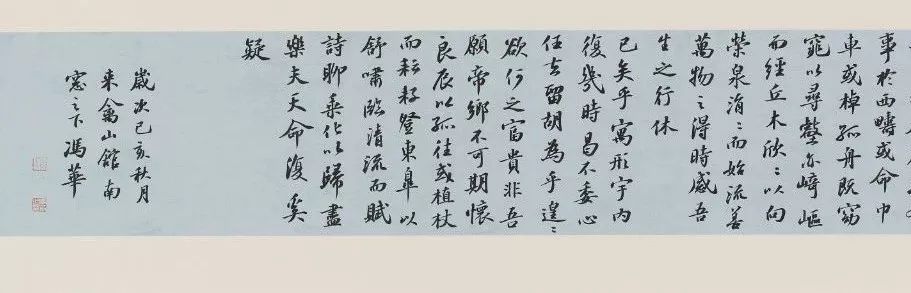 事於西疇或命巾
車或棹孤舟既窈
窕以尋壑亦崎嶇
而經丘木欣〻以向
榮泉涓〻而始流善
萬物之得時感吾
生之行休
已矣乎寓形宇內
復幾時曷不委心
任去留胡為乎遑〻
欲何之富貴非吾
願帝鄉不可期懷
良辰以孤往或植杖
而耘耔登東皋以
舒嘯臨清流而賦
詩聊乘化以歸盡
樂夫天命復奚
疑
歲次己亥秋月
來禽山館南
窓之下馮華